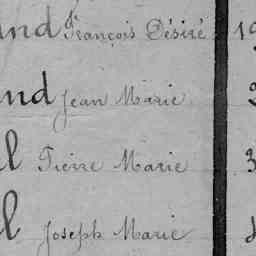 and François Désiré 19
and Jean Marie
l Pierre Marie 3
l Joseph Marie